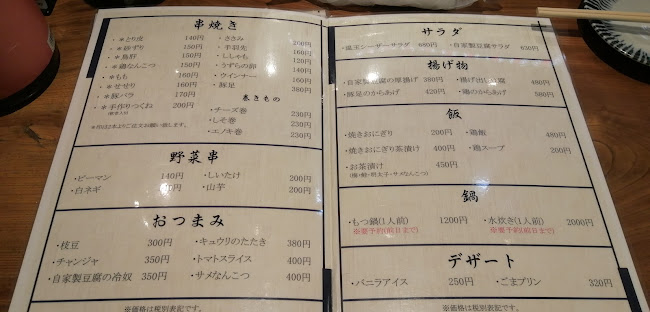 串焼き
・*とり皮 140円
・*砂ずり 150円
・*鳥肝 150円
・*鶏なんこつ 150円
・*もも 160円
・*せせり 160円
・*豚バラ 170円
・*手作りつくね 200円
・ささみ 200円
・手羽先
・ししゃも
・うずらの卵
・ウインナー
・豚足 380円
巻きもの
・チーズ巻 230円
・しそ巻 230円
・エノキ巻 230円
野菜串
・ピーマン 140円
・白ネギ
・しいたけ 200円
・山芋 200円
おつまみ
・枝豆 300円
・チャンジャ 350円
・自家製豆腐の冷奴 350円
・キュウリのたたき 380円
・トマトスライス 400円
・サメなんこつ 400円
※価格は税別表記です。
サラダ
シーザーサラダ 680円
・自家製豆腐サラダ 630円
揚げ物
・自家製豆腐の厚揚げ 380円
・豚足のからあげ 420円
・揚げ出し豆腐 480円
・鶏のからあげ 580円
飯
・焼きおにぎり 200円
・焼きおにぎり茶漬け 400円
・お茶漬け 450円
(梅・鮭・明太子・サメなんこつ)
・鶏飯 480円
・鶏スープ 200円
鍋
・もつ鍋(1人前) 1200円
※要予約(前日まで)
・水炊き(1人前) 2000円
※要予約(前日まで)
デザート
・バニラアイス 250円
・ごまプリン 320円
※価格は税別表記です。